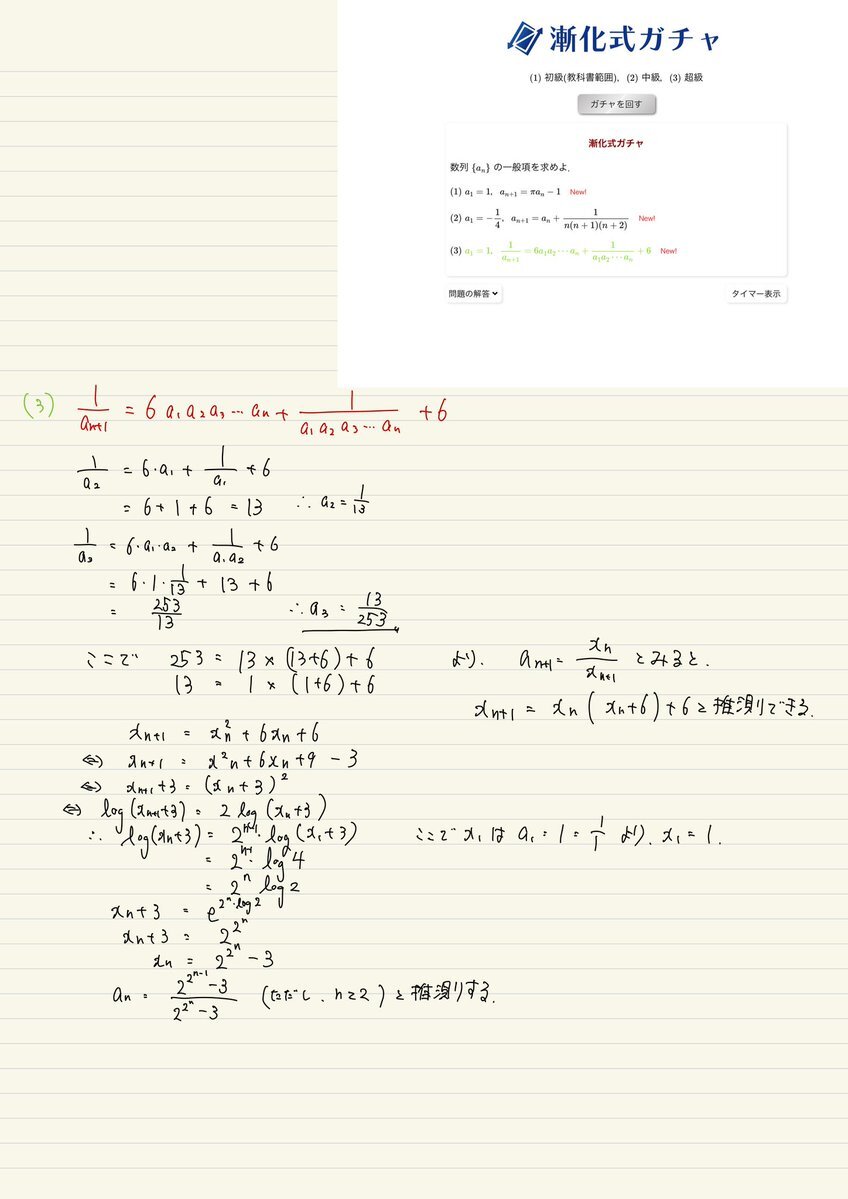 漸化式ガチャ
(1) 初級(教科書範囲), (2) 中級, (3) 超級
ガチャを回す
漸化式ガチャ
数列 {aₙ} の一般項を求めよ.
(1) a₁ = 1, aₙ₊₁ = πaₙ − 1 New!
(2) a₁ = −1/4, aₙ₊₁ = aₙ + 1/(n(n+1)(n+2)) New!
(3) a₁ = 1, 1/aₙ₊₁ = 6a₁a₂⋯aₙ + 1/(a₁a₂⋯aₙ) + 6 New!
問題の解答
タイマー表示
(3) 1/aₙ₊₁ = 6 a₁ a₂ a₃ ⋯ aₙ + 1/(a₁ a₂ a₃ ⋯ aₙ) + 6
1/a₂ = 6·a₁ + 1/a₁ + 6
= 6 + 1 + 6 = 13 ∴ a₂ = 1/13
1/a₃ = 6·a₁·a₂ + 1/(a₁a₂) + 6
= 6·1·1/13 + 13 + 6
= 253/13 ∴ a₃ = 13/253
ここで 253 = 13 × (13+6) + 6 より. aₙ₊₁ = xₙ/xₙ₊₁ とみると.
13 = 1 × (1+6) + 6
xₙ₊₁ = xₙ(xₙ+6)+6 と推測できる.
xₙ₊₁ = xₙ² + 6xₙ + 6
⇔ xₙ₊₁ = x²ₙ + 6xₙ + 9 − 3
⇔ xₙ₊₁ + 3 = (xₙ + 3)²
⇔ log(xₙ₊₁+3) = 2 log(xₙ+3)
∴ log(xₙ+3) = 2ⁿ⁻¹·log(x₁+3) ここで x₁ は a₁ = 1 = 1/1 より. x₁ = 1.
= 2ⁿ⁻¹·log 4
= 2ⁿ log 2
xₙ + 3 = e^(2ⁿ·log 2)
xₙ + 3 = 2^(2ⁿ)
xₙ = 2^(2ⁿ) − 3
aₙ = (2^(2ⁿ⁻¹) − 3)/(2^(2ⁿ) − 3) (ただし、n≥2) と推測する.